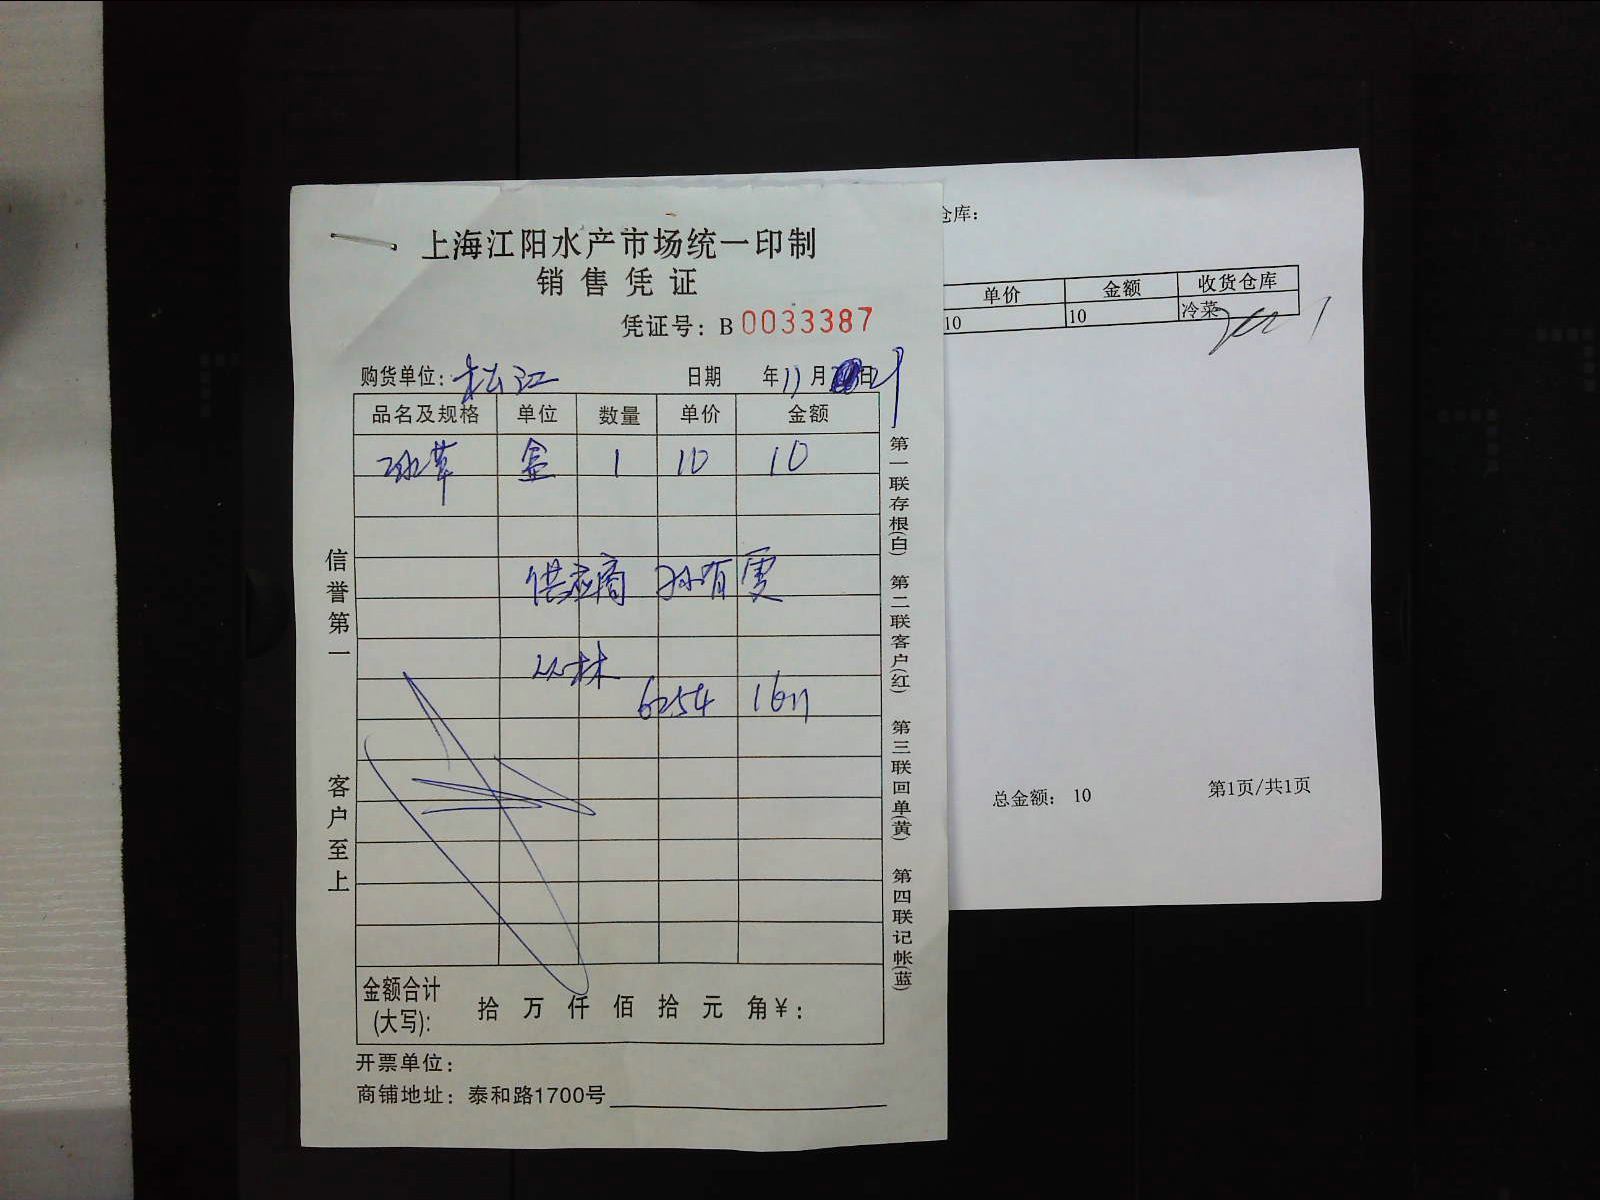 上海江阳水产市场统一印制
销售凭证
凭证号：B 0033387
购货单位：松江 日期 年11月21日
品名及规格 单位 数量 单价 金额
冰草 盒 1 10 10
供应商 孙有雯
6254 1611
信誉第一
客户至上
第一联存根(白) 第二联客户(红) 第三联回单(黄) 第四联记帐(蓝)
金额合计(大写)： 拾 万 仟 佰 拾 元 角 ¥：
开票单位：
商铺地址：泰和路1700号
仓库：
单价 金额 收货仓库
10 10 冷菜
总金额： 10 第1页/共1页